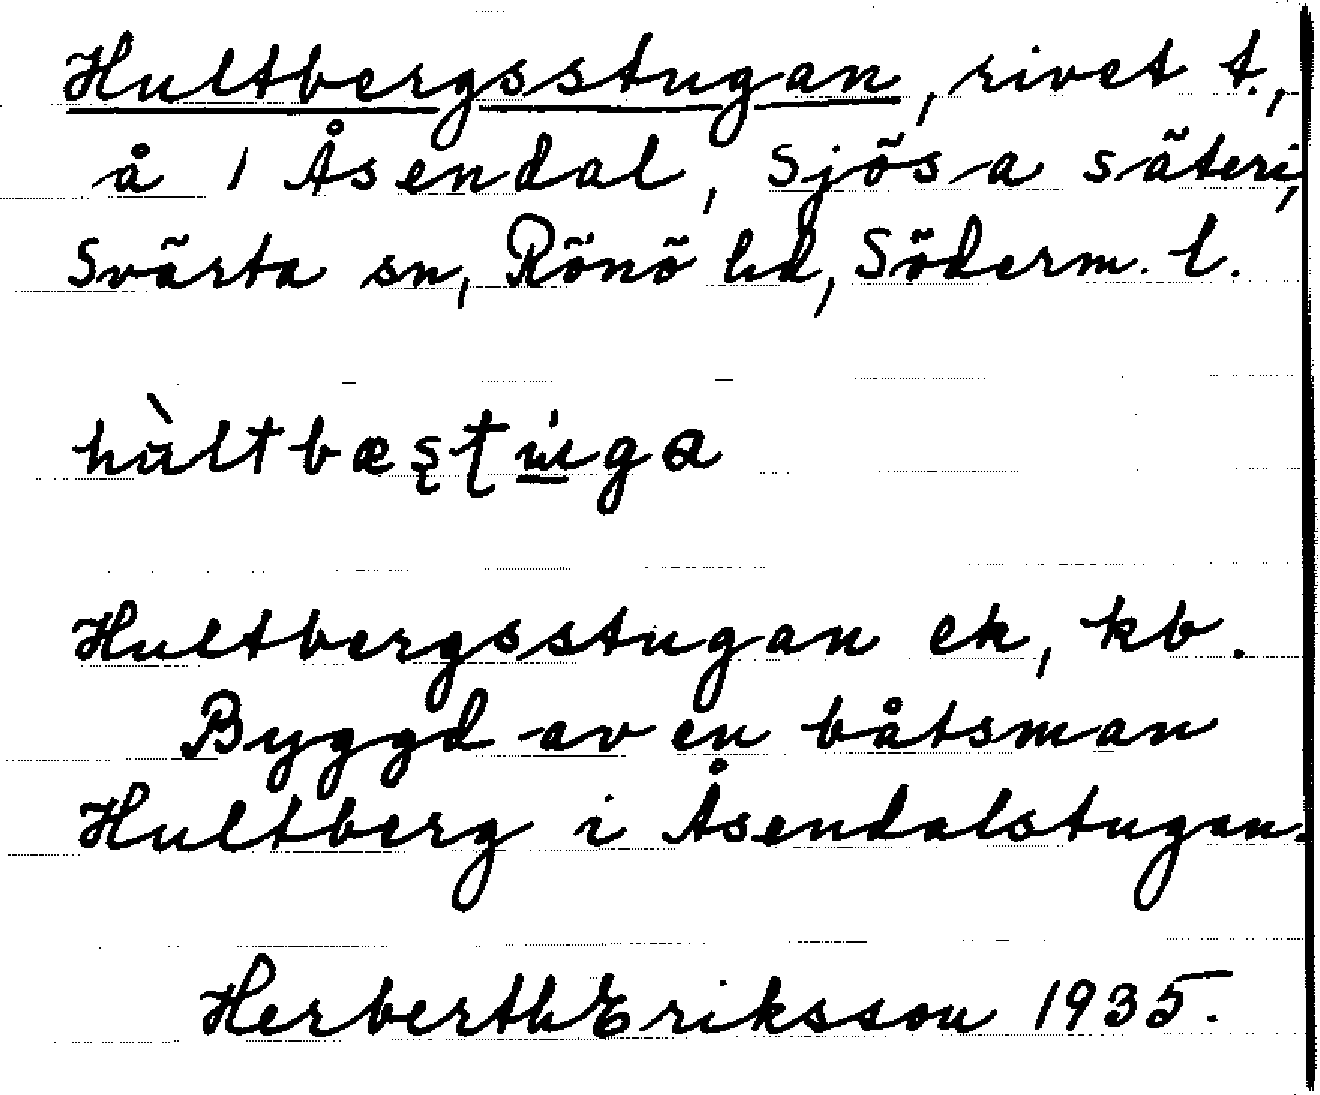 Hultbergsstugan, rivet t.,
å 1 Åsendal, Sjösa säteri,
Svärta sn, Rönö hd, Söderm. l.
Hultbergsstugan ek, kb.
Byggd av en båtsman
Hultberg i Åsendalstugan.
Herberth Eriksson 1935.